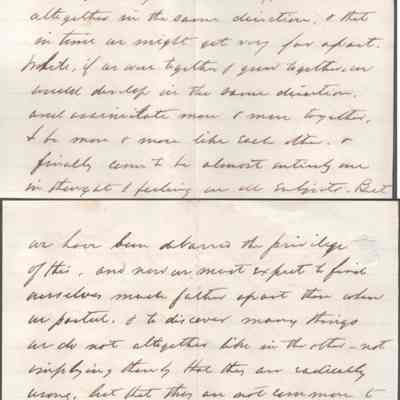 altogether in the same direction, & that
in time we might get very far apart.
While, if we were together & grew together, we
would develop in the same direction,
and assimilate more & more together,
& be more & more like each other, &
finally come to be almost entirely one
in thought & feeling on all subjects. But
we have been debarred the privilege
of this, and now we must expect to find
ourselves much father apart than when
we parted, & to discover many things
we do not altogether like in the other - not
implying thereby that they are radically
wrong, but that they are not common to